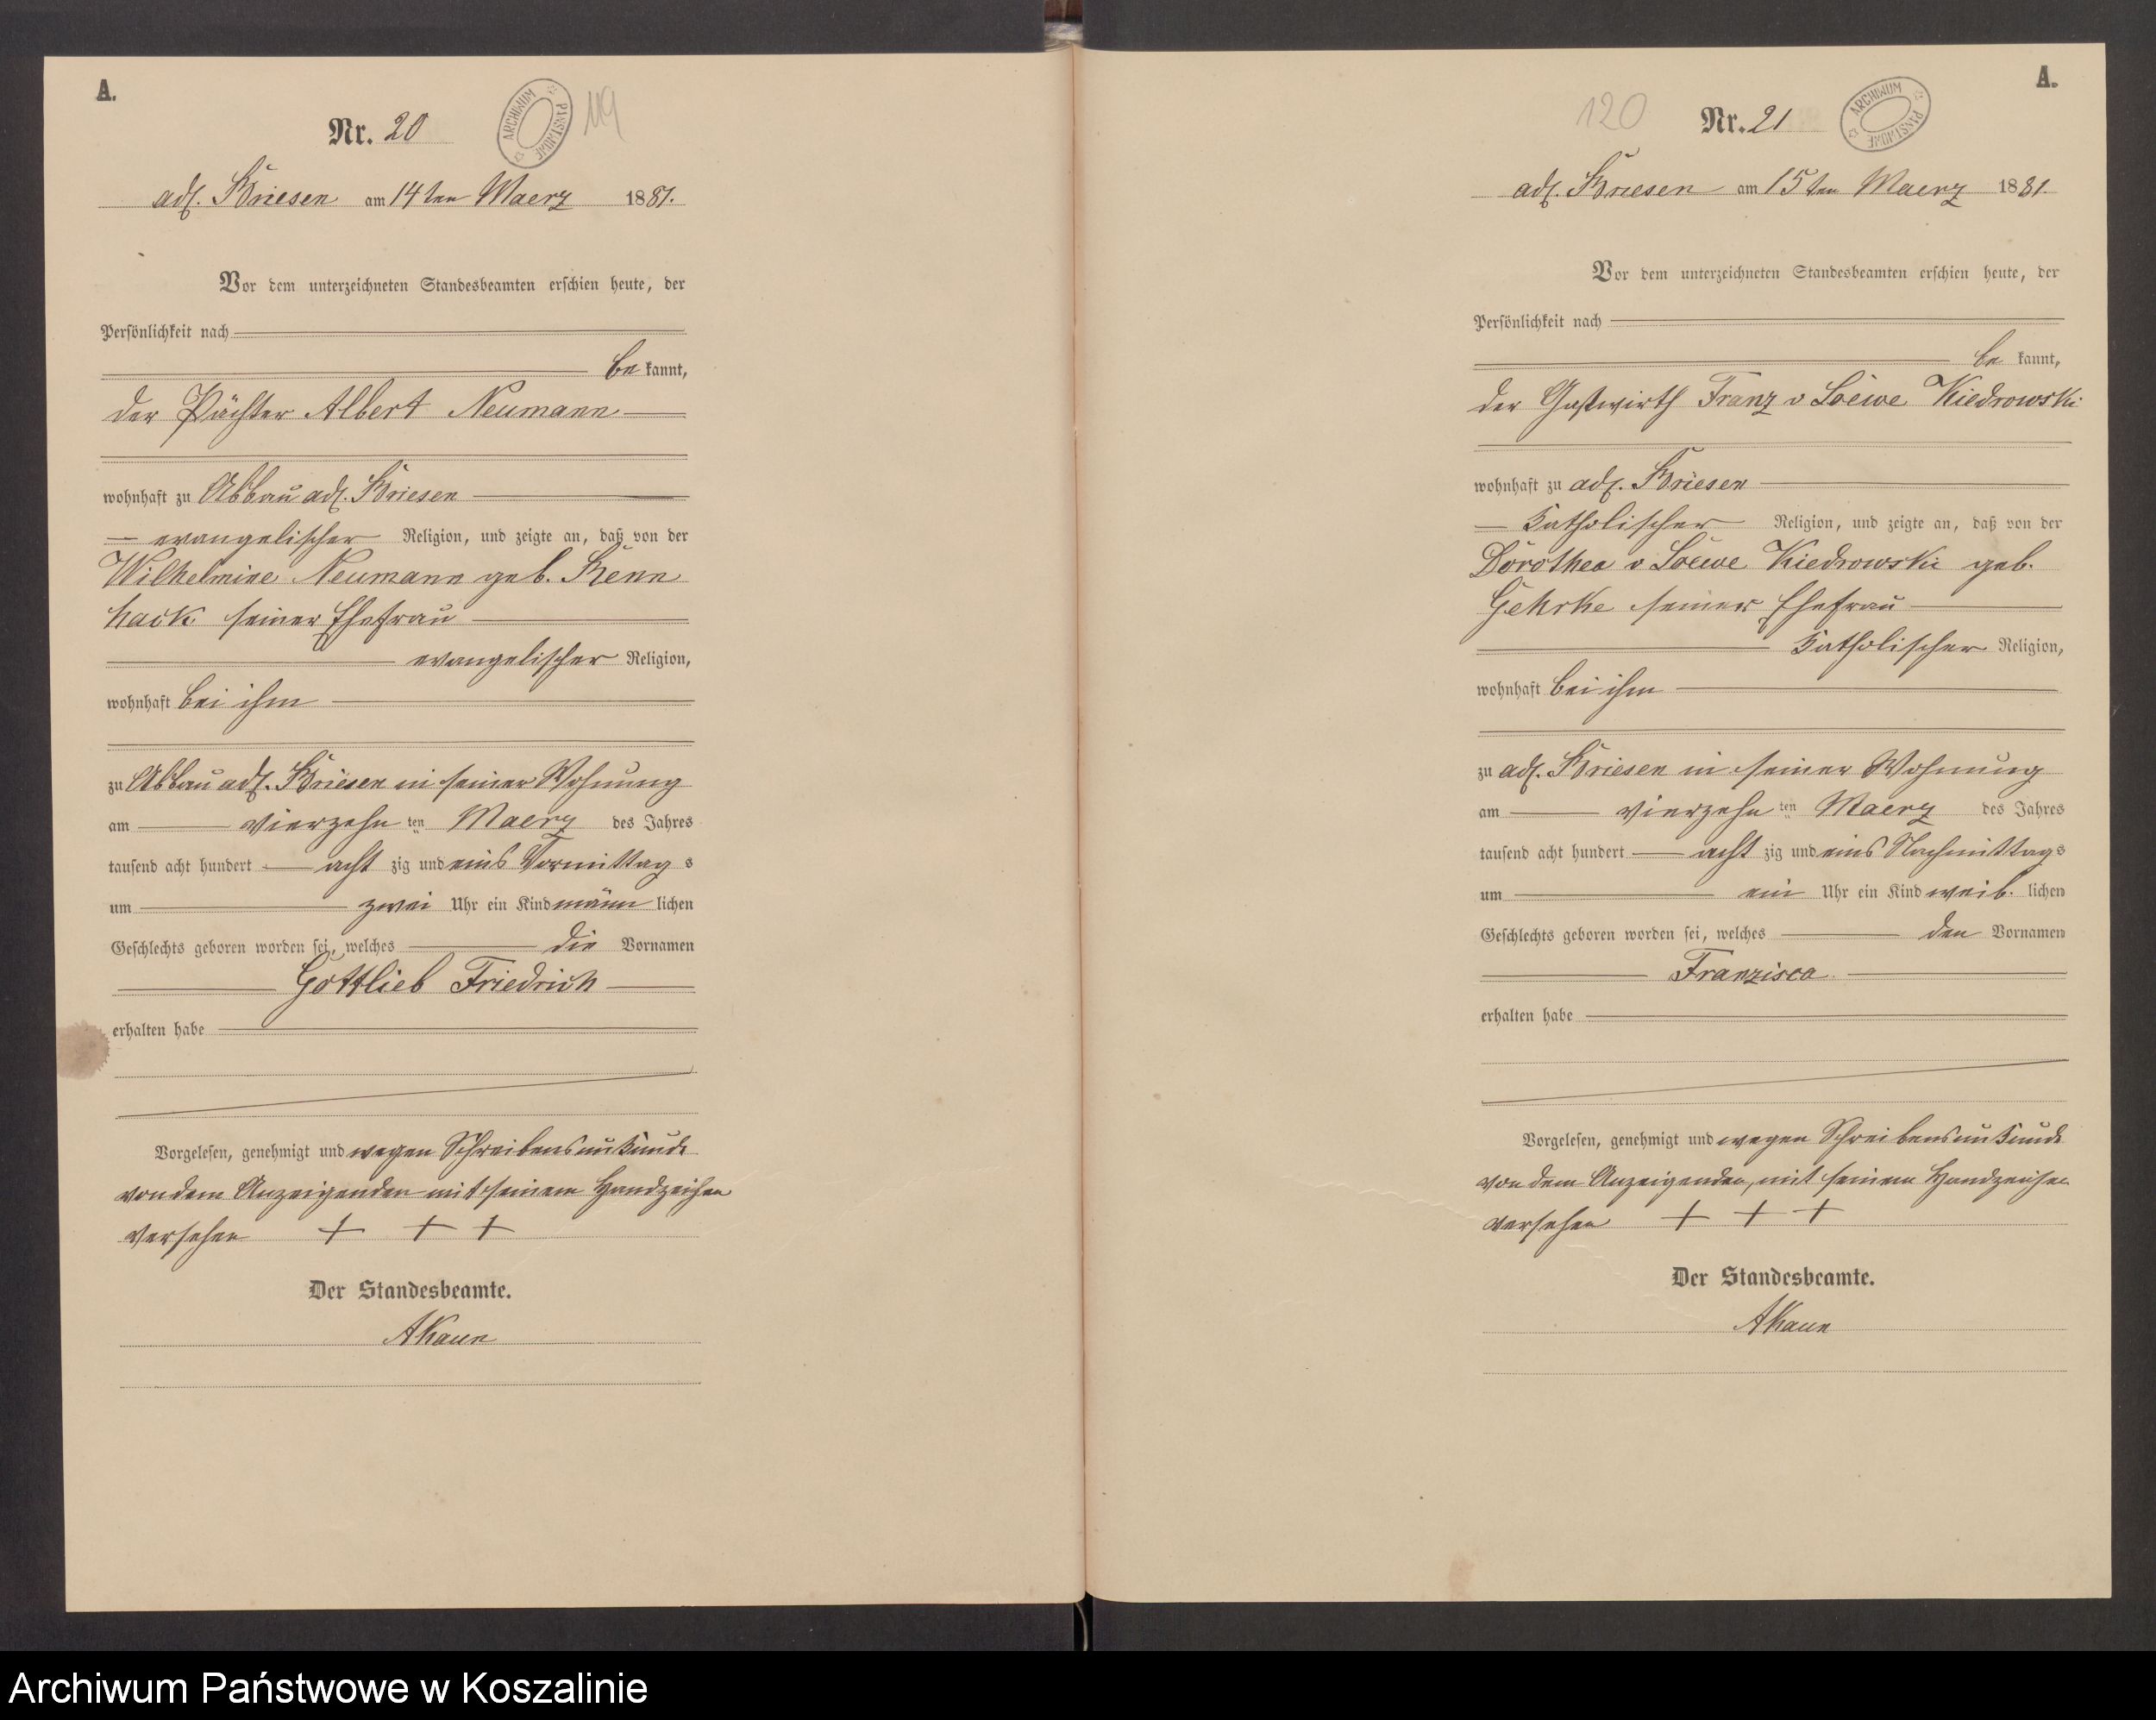 A.
Nr. 20
ARCHIWUM PAŃSTWOWE
119
adl. Briesen am 14ten Maerz 1881.
Vor dem unterzeichneten Standesbeamten erschien heute, der
Persönlichkeit nach
be kannt,
der Pächter Albert Neumann
wohnhaft zu Abbau adl. Briesen
evangelischer Religion, und zeigte an, daß von der
Wilhelmine Neumann geb.
hack seiner Ehefrau
evangelischer Religion,
wohnhaft bei ihm
zu Abbau adl. Briesen in seiner Wohnung
am vierzehn ten Maerz des Jahres
tausend acht hundert acht zig und eins Vormittag s
um zwei Uhr ein Kind männ lichen
Geschlechts geboren worden sei, welches die Vornamen
Gottlieb Friedrich
erhalten habe
Vorgelesen, genehmigt und wegen Schreibensunkunde
von dem Anzeigenden mit seinem Handzeichen
versehen + + +
Der Standesbeamte.
AKaun
A.
120
Nr. 21
ARCHIWUM PAŃSTWOWE
adl. Briesen am 15ten Maerz 1881.
Vor dem unterzeichneten Standesbeamten erschien heute, der
Persönlichkeit nach
be kannt,
der Gastwirth Franz v Loewe Kiedrowski
wohnhaft zu adl. Briesen
katholischer Religion, und zeigte an, daß von der
Dorothea v Loewe Kiedrowski geb.
Gehrke seiner Ehefrau
katholischer Religion,
wohnhaft bei ihm
zu adl. Briesen in seiner Wohnung
am vierzehn ten Maerz des Jahres
tausend acht hundert acht zig und eins Nachmittags
um ein Uhr ein Kind weib. lichen
Geschlechts geboren worden sei, welches den Vornamen
Franzisca
erhalten habe
Vorgelesen, genehmigt und wegen Schreibensunkunde
von dem Anzeigenden, mit seinem Handzeichen
versehen + + +
Der Standesbeamte.
AKaun
Archiwum Państwowe w Koszalinie